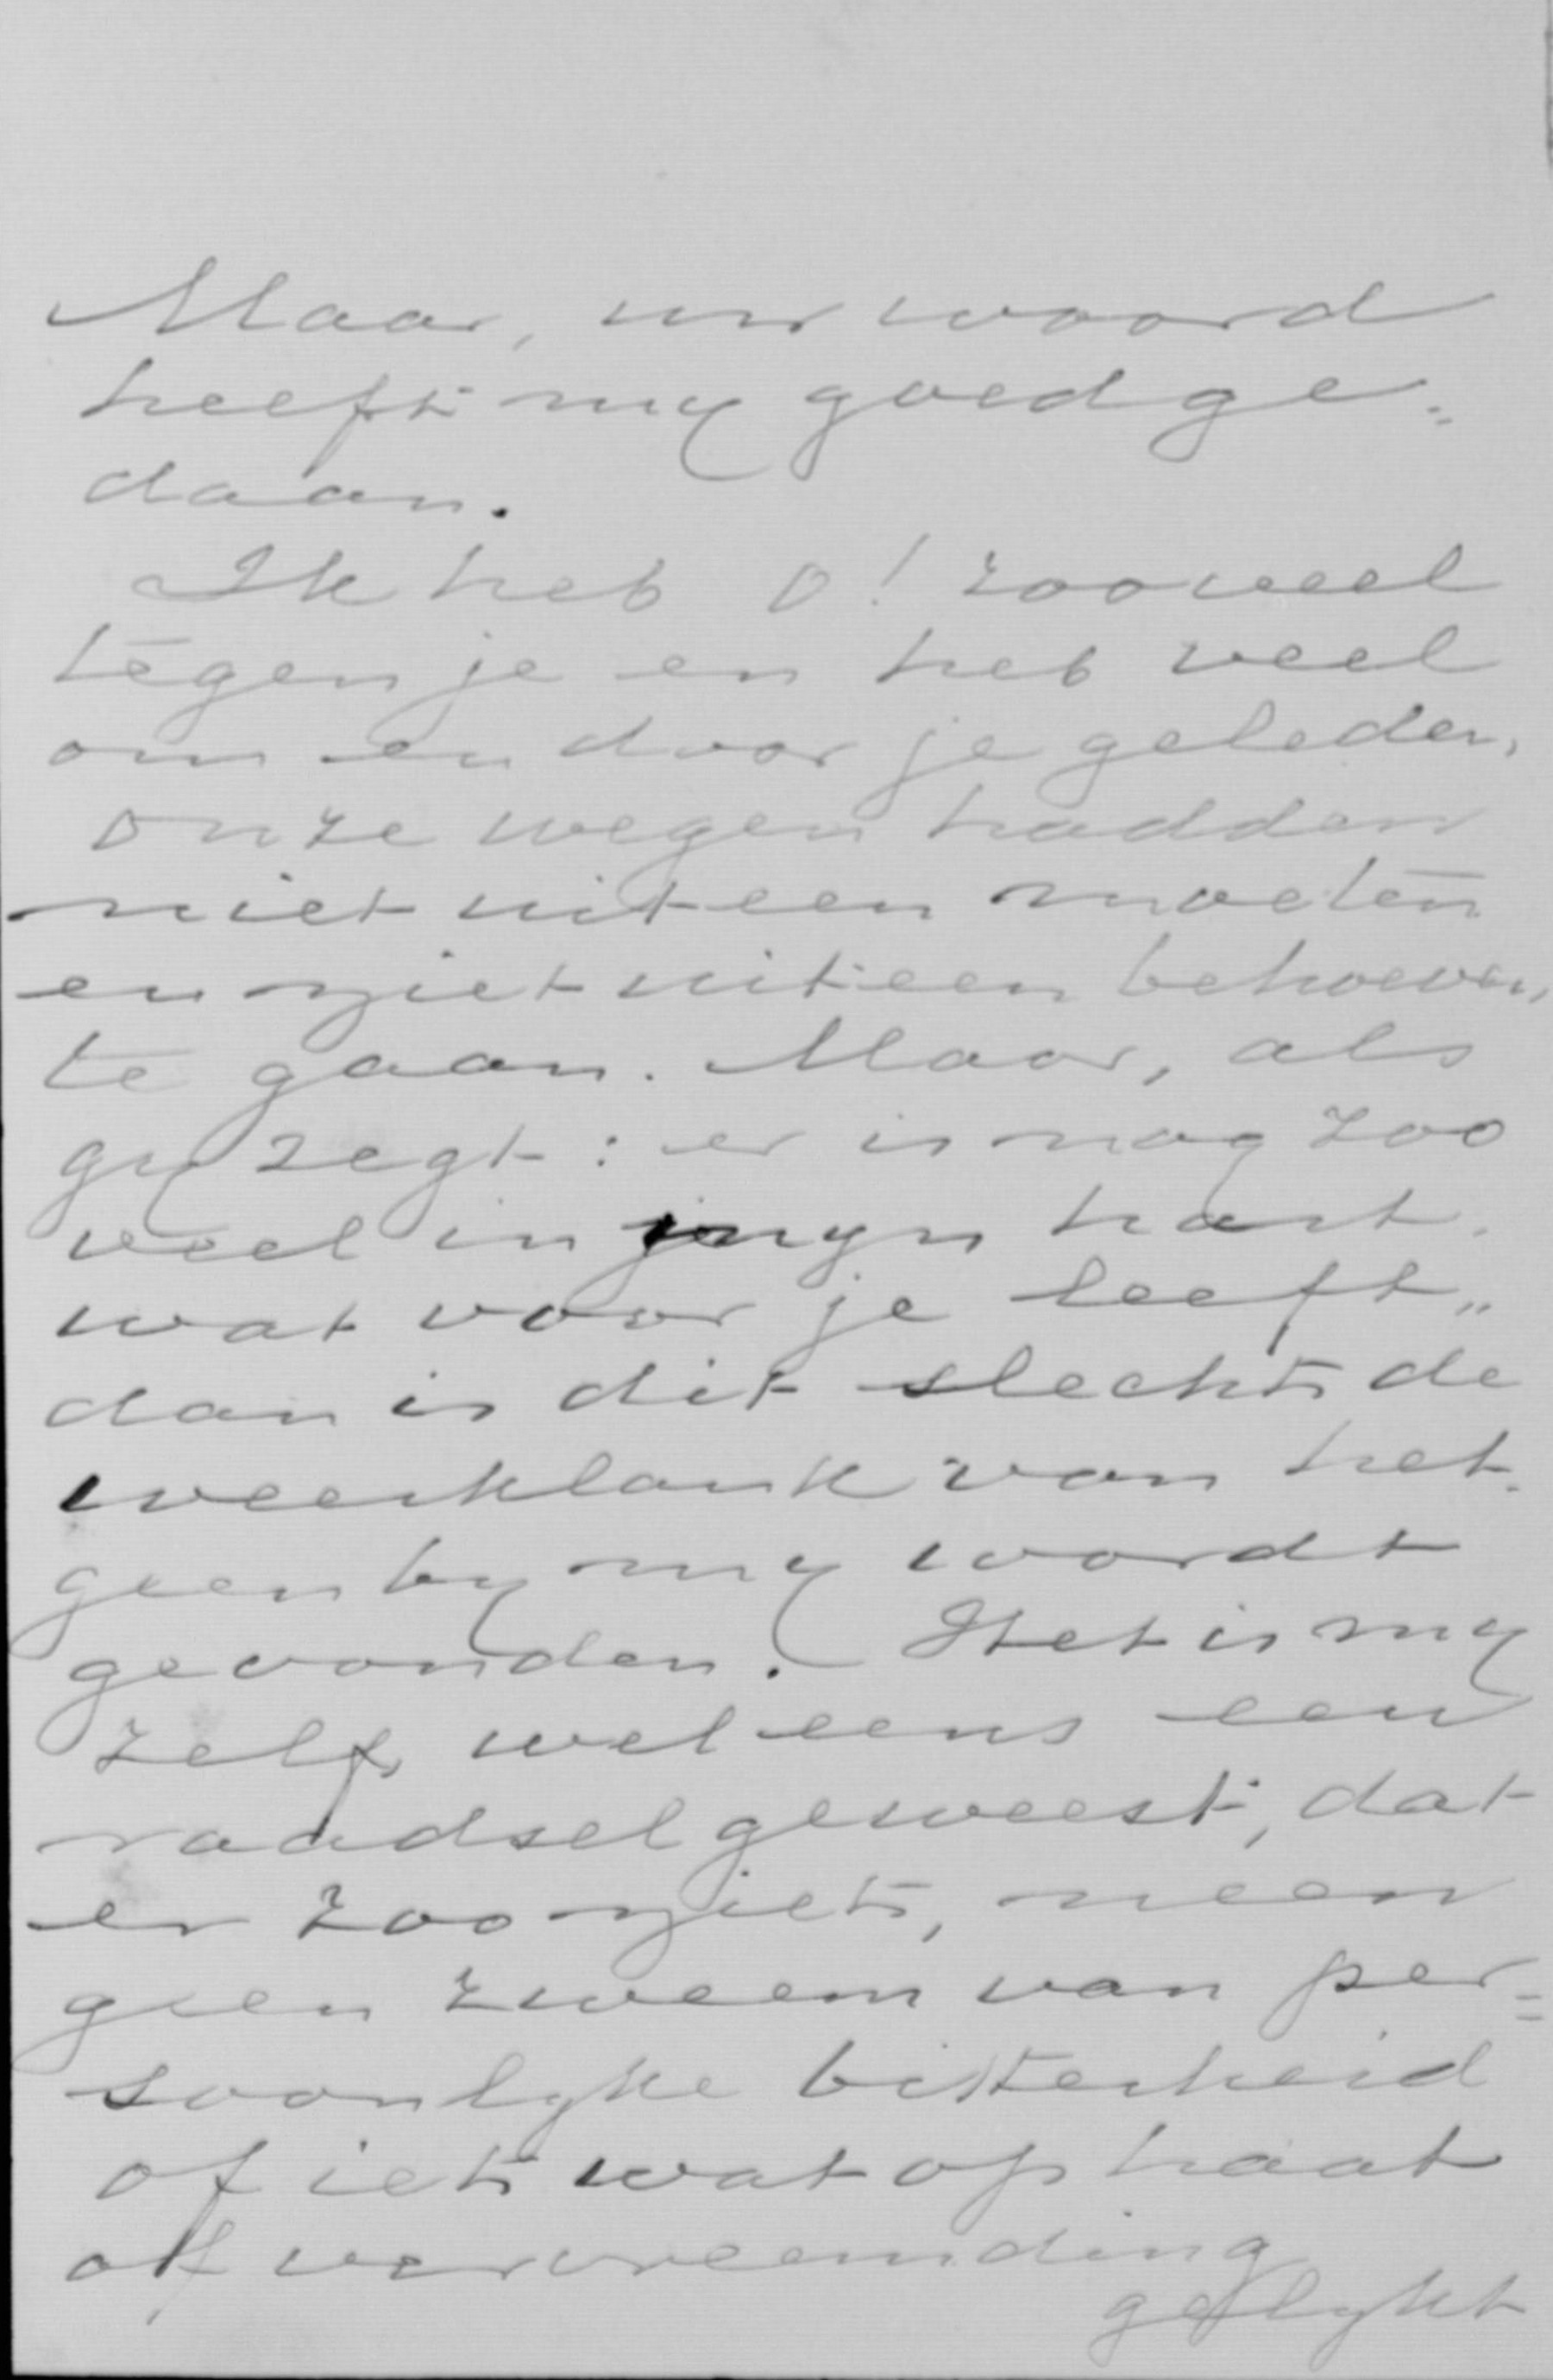 Maar, uw woord
heeft my goed ge=
daan.
Ik heb o! zooveel
tegen je en heb veel
om en door je geleden,
onze wegen hadden
niet uiteen moeten
en niet uiteen behoeven,
te gaan. Maar, als
gy zegt: er is nog zoo
veel in myn hart.
wat voor je leeft „
dan is dit slechts de
weerklank van het.
geen by my wordt
gevonden. Het is my
zelf wel eens een
raadsel geweest, dat
er zoo niets, neen
geen zweem van per=
soonlyke bitterheid
of iets wat op haat
of vervreemding
gelykt